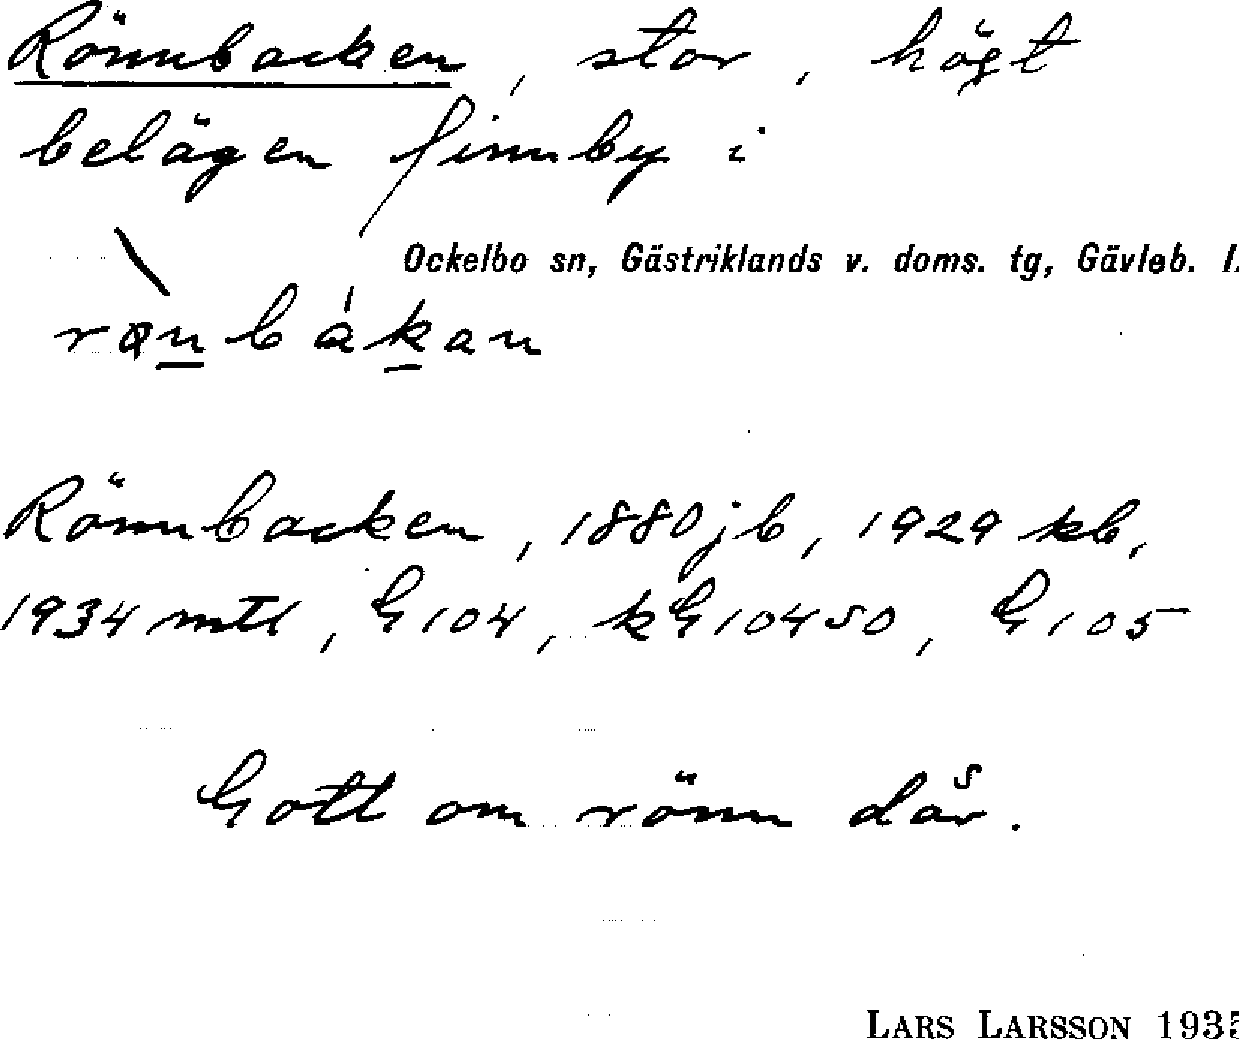 Rönnbacken, stor, högt
belägen finnby i
Ockelbo sn, Gästriklands v. doms. tg, Gävleb. l.
rönbákan
Rönnbacken, 1880 jb, 1929 kb,
1934 mtl, G 104, kG 10450, G 105
Gott om rönn där.
LARS LARSSON 1935